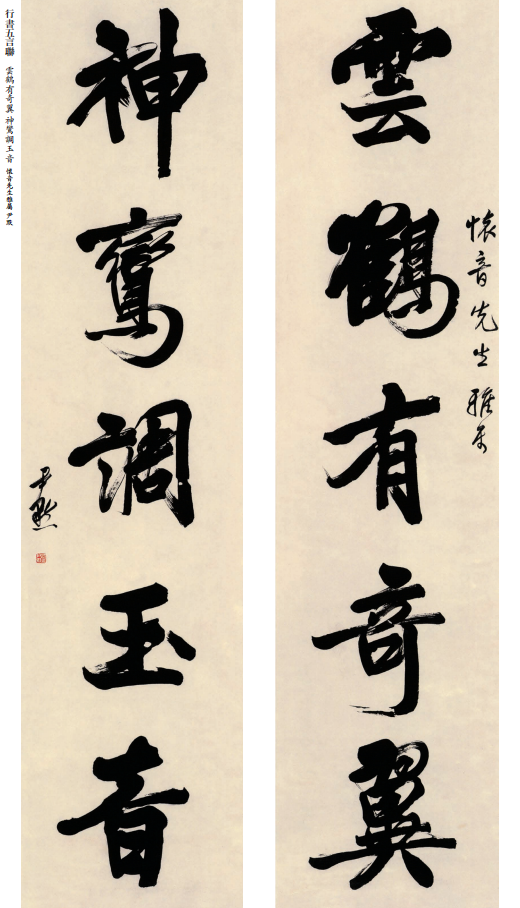 懷音先生雅屬
雲鶴有奇翼
神鸞調玉音
尹默
行書五言聯
雲鶴有奇翼 神鸞調玉音 懷音先生雅屬 尹默